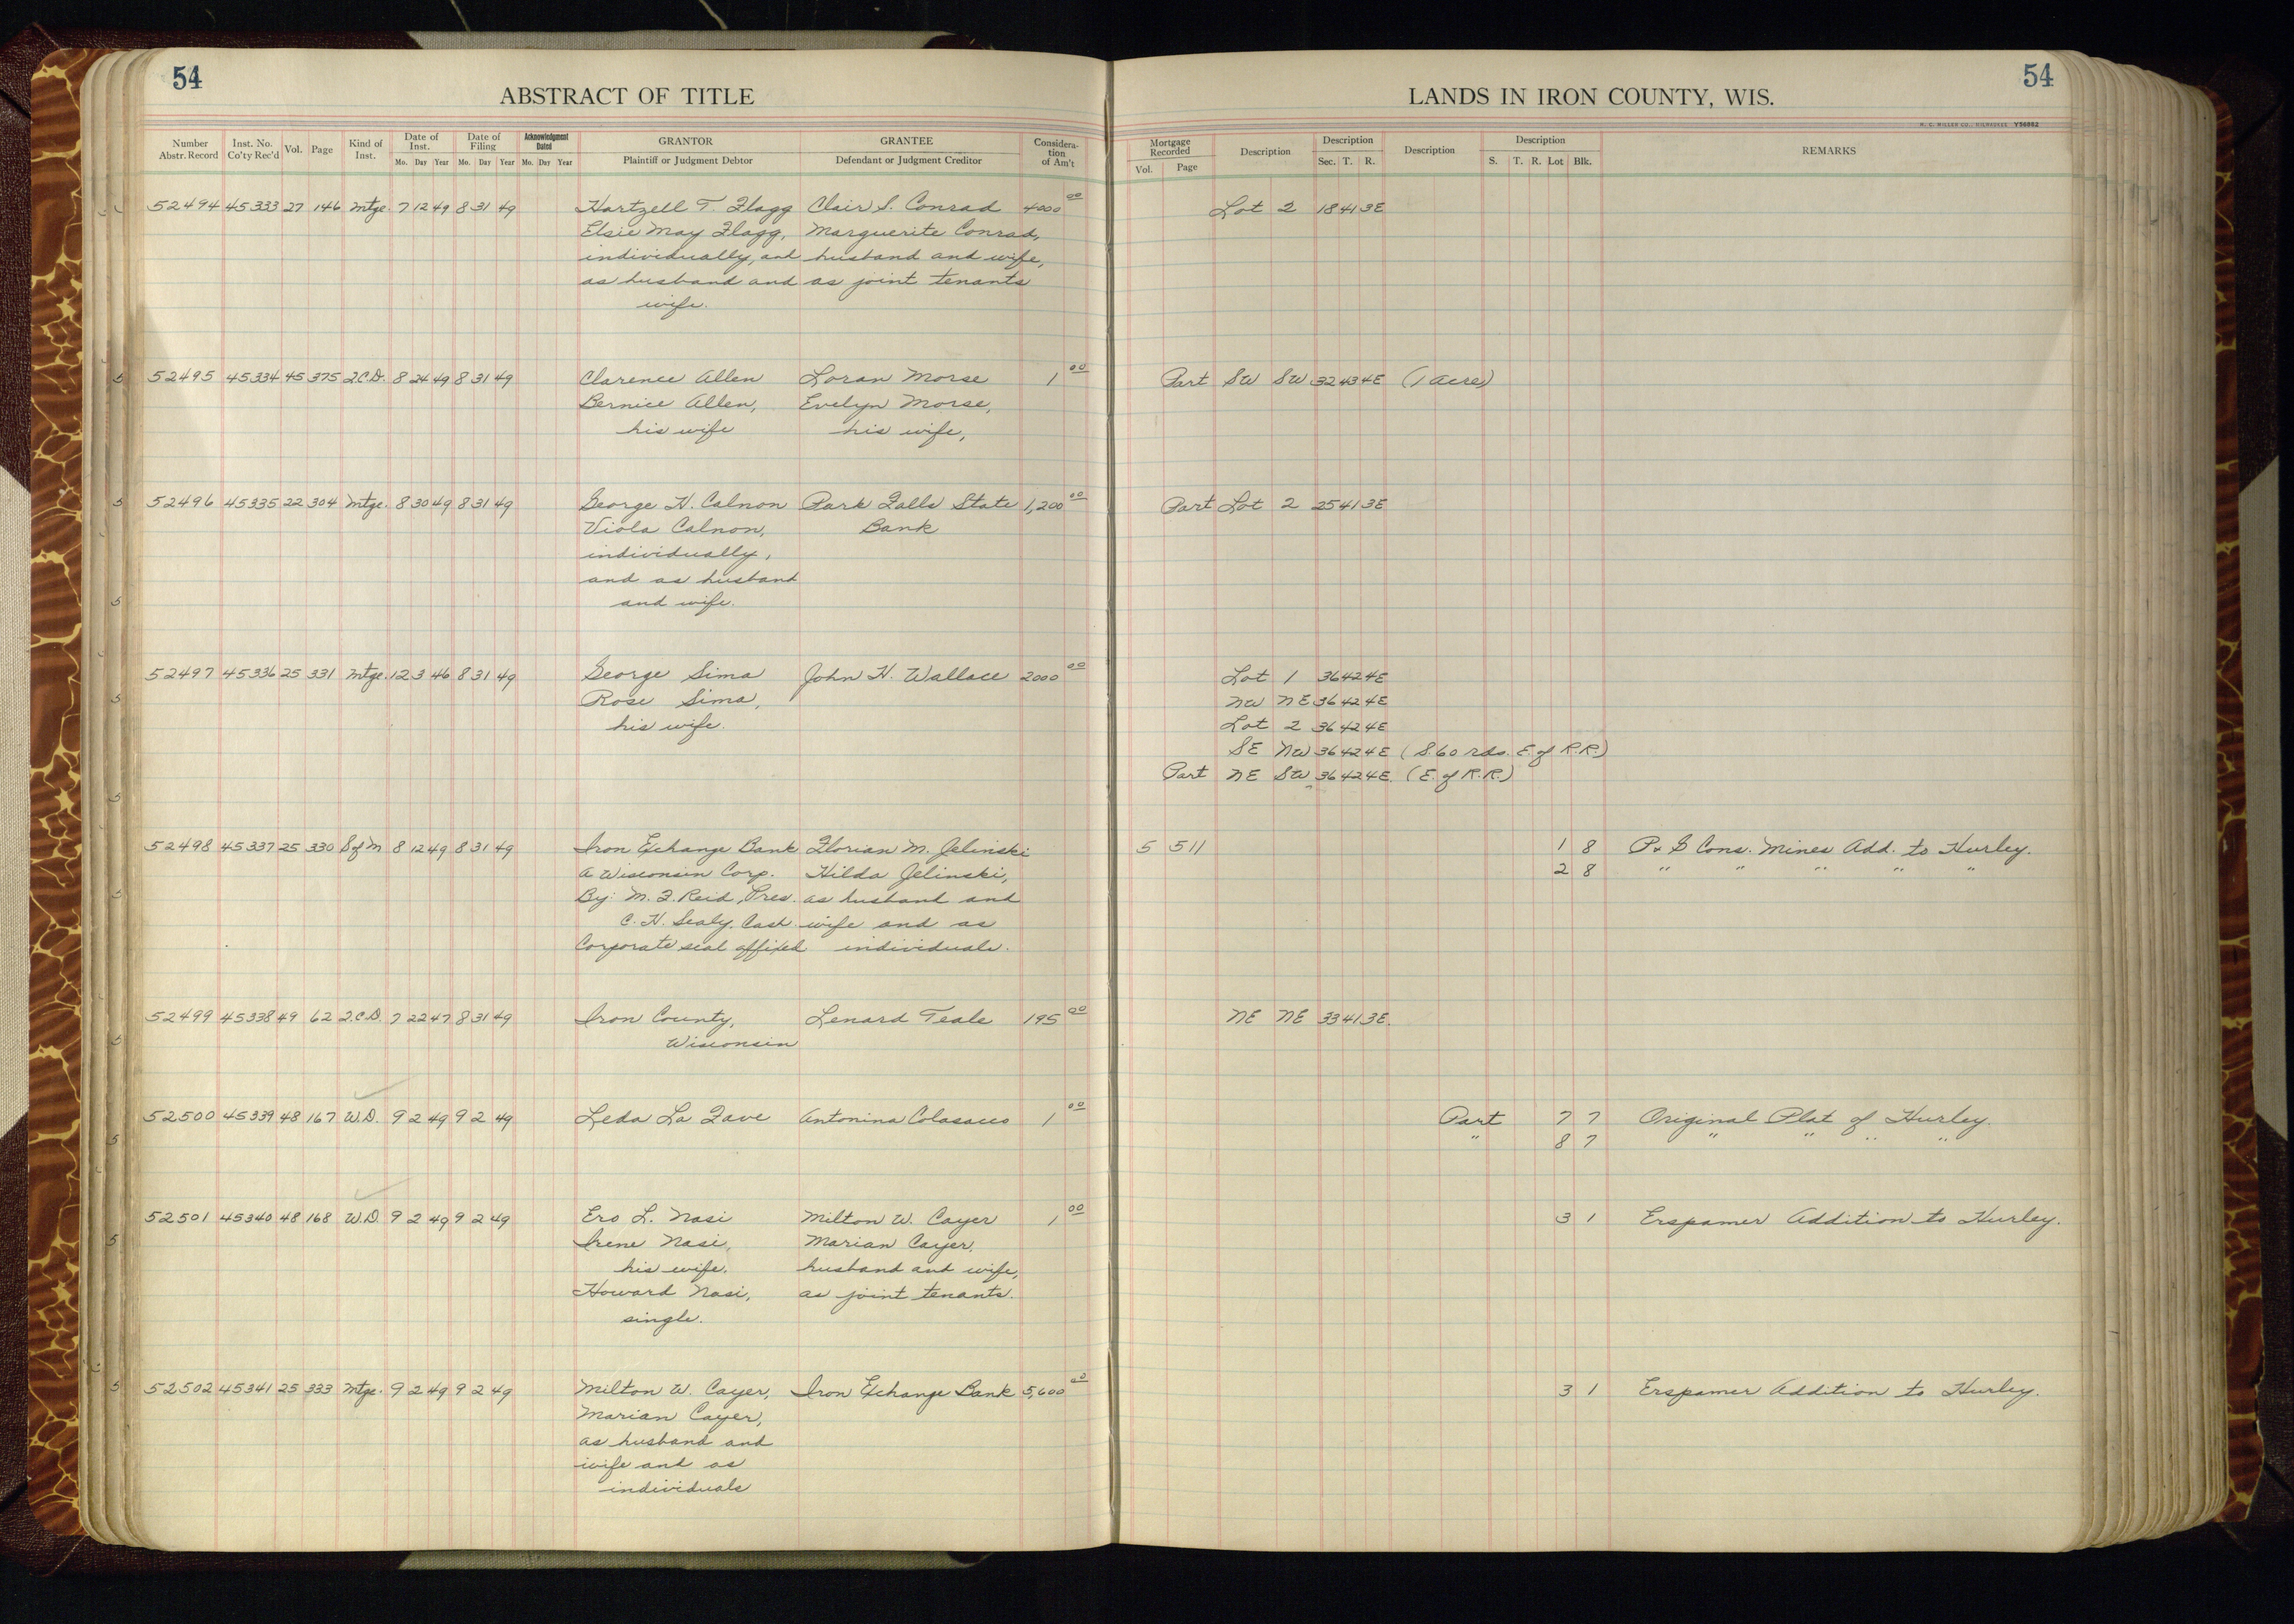 54
54
ABSTRACT OF TITLE
LANDS IN IRON COUNTY, WIS.
H. C. MILLER CO., MILWAUKEE Y56862
Number Abstr. Record Inst. No. Co'ty Rec'd Vol. Page Kind of Inst. Date of Inst. Mo. Day Year Date of Filing Mo. Day Year Acknowledgment Dated Mo. Day Year GRANTOR Plaintiff or Judgment Debtor GRANTEE Defendant or Judgment Creditor Considera-tion of Am't Mortgage Recorded Vol. Page Description Description Sec. T. R. Description Description S. T. R. Lot Blk. REMARKS
52494 45333 27 146 Mtge. 7 12 49 8 31 49 Hartzell T. Flagg Clair S. Conrad 4000 00 Lot 2 18 41 3E
Elsie May Flagg, Marguerite Conrad,
individually, and husband and wife,
as husband and as joint tenants
wife.
52495 45334 45 375 Q.C.D. 8 24 49 8 31 49 Clarence Allen Loran Morse 1 00 Part SW SW 32 43 4E (1 acre)
Bernice Allen, Evelyn Morse,
his wife his wife,
52496 45335 22 304 Mtge. 8 30 49 8 31 49 George H. Calnon Park Falls State 1,200 00 Part Lot 2 25 41 3E
Viola Calnon, Bank
individually,
and as husband
and wife.
52497 45336 25 331 Mtge. 12 3 46 8 31 49 George Sima John H. Wallace 2000 00 Lot 1 36 42 4E
Rose Sima, NW NE 36 42 4E
his wife. Lot 2 36 42 4E
SE NW 36 42 4E (S. 60 rds. E. of R.R.)
Part NE SW 36 42 4E. (E. of R.R.)
52498 45337 25 330 S of M 8 12 49 8 31 49 Iron Exchange Bank Florian M. Jelinski 5 511 1 8 P. & G Cons. Mines Add. to Hurley.
A Wisconsin Corp. Hilda Jelinski, 2 8 " " " " "
By: M. F. Reid, Pres. as husband and
C. H. Sealy, Cash. wife and as
Corporate seal affixed individuals.
52499 45338 49 62 Q.C.D. 7 22 47 8 31 49 Iron County, Lenard Teale 195 00 NE NE 33 41 3E.
Wisconsin
52500 45339 48 167 W.D. 9 2 49 9 2 49 Leda La Fave Antonina Colasacco 1 00 Part 7 7 Original Plat of Hurley.
" 8 7 " " " "
52501 45340 48 168 W.D. 9 2 49 9 2 49 Ero L. Nasi Milton W. Cayer 1 00 3 1 Erspamer Addition to Hurley.
Irene Nasi, Marian Cayer,
his wife. husband and wife,
Howard Nasi, as joint tenants.
single.
52502 45341 25 333 Mtge. 9 2 49 9 2 49 Milton W. Cayer, Iron Exchange Bank 5,600 00 3 1 Erspamer Addition to Hurley.
Marian Cayer,
as husband and
wife and as
individuals